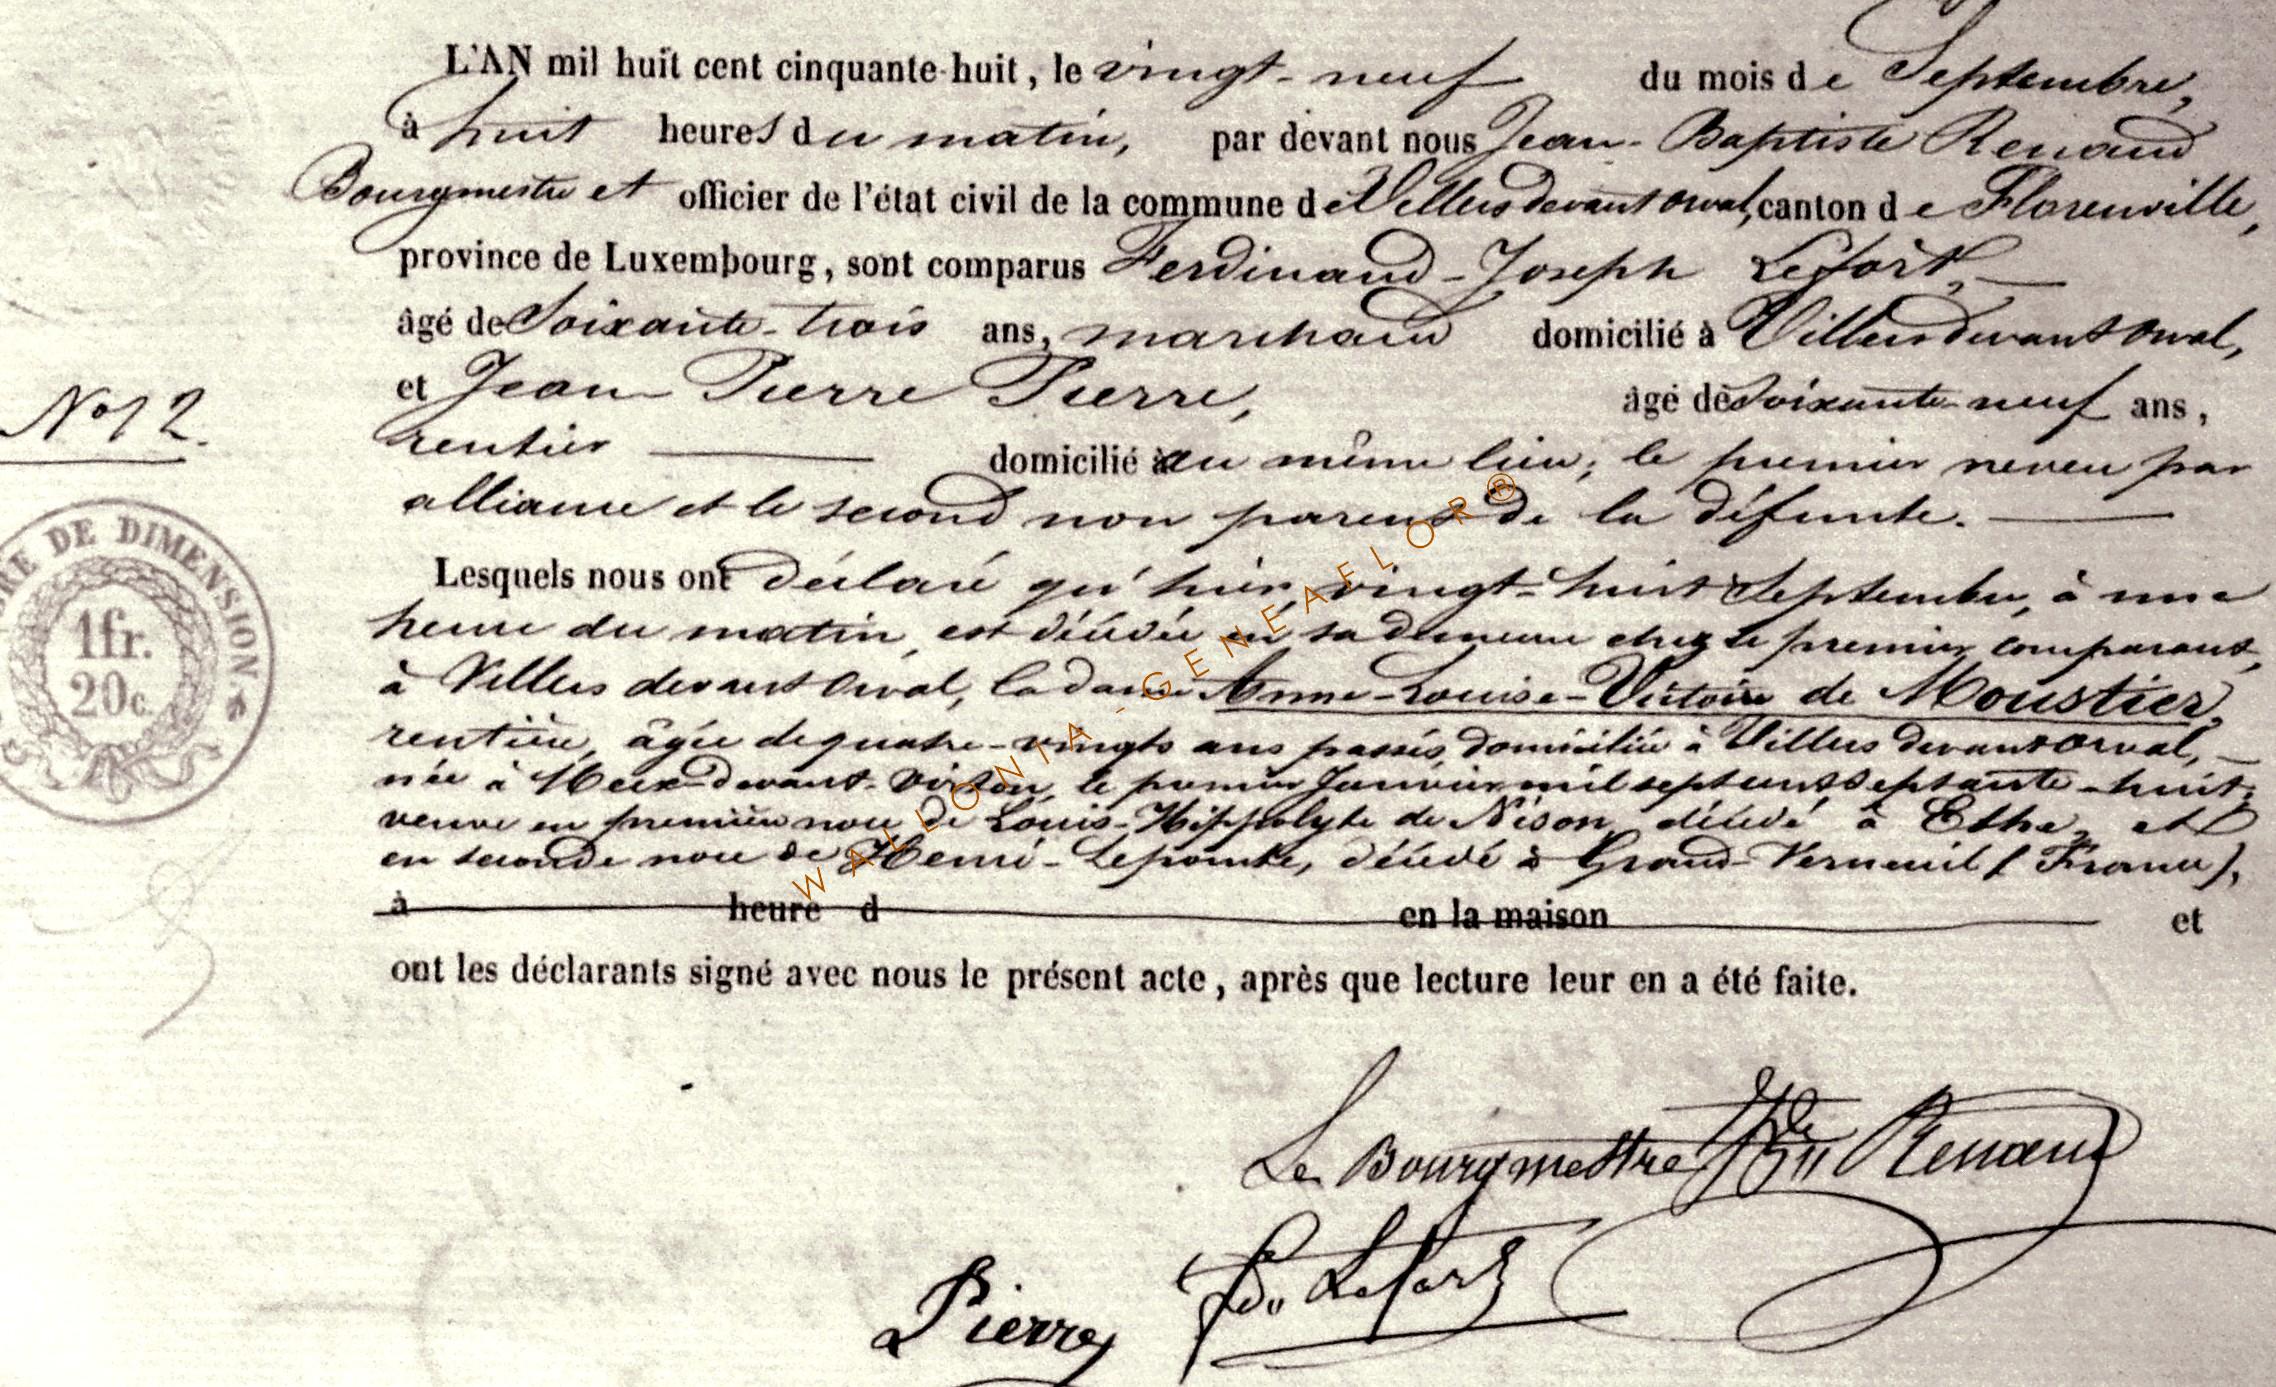 L'AN mil huit cent cinquante-huit, le vingt-neuf du mois de Septembre,
à huit heures du matin, par devant nous Jean-Baptiste Renaud
Bourgmestre et officier de l'état civil de la commune de Villers devant Orval, canton de Florenville,
province de Luxembourg, sont comparus Ferdinand-Joseph Lefort,
âgé de Soixante-trois ans, marchand domicilié à Villers devant Orval,
et Jean Pierre Pierre, âgé de Soixante-neuf ans,
No 12.
rentier domicilié à au même lieu; le premier neveu par
alliance et le second non parent de la défunte.
Lesquels nous ont déclaré qu'hier, vingt-huit Septembre, à une
heure du matin, est décédée en sa demeure chez le premier comparant,
à Villers devant Orval, la dame Anne-Louise-Victoire de Moustier,
rentière, âgée de quatre-vingts ans passés, domiciliée à Villers devant Orval,
née à Meix-devant-Virton, le premier Janvier mil sept cent septante-huit;
veuve en première noce de Louis-Hippolyte de Nison, décédé à Ethe, et
en seconde noce de Henri-Lepointe, décédé à Grand-Verneuil (France),
à heure d en la maison et
ont les déclarants signé avec nous le présent acte, après que lecture leur en a été faite.
TIMBRE DE DIMENSION
1fr.
20c.
WALLONIA-GENEAFLOR®
Le Bourgmestre Renaud
Pierre Fd. Lefort